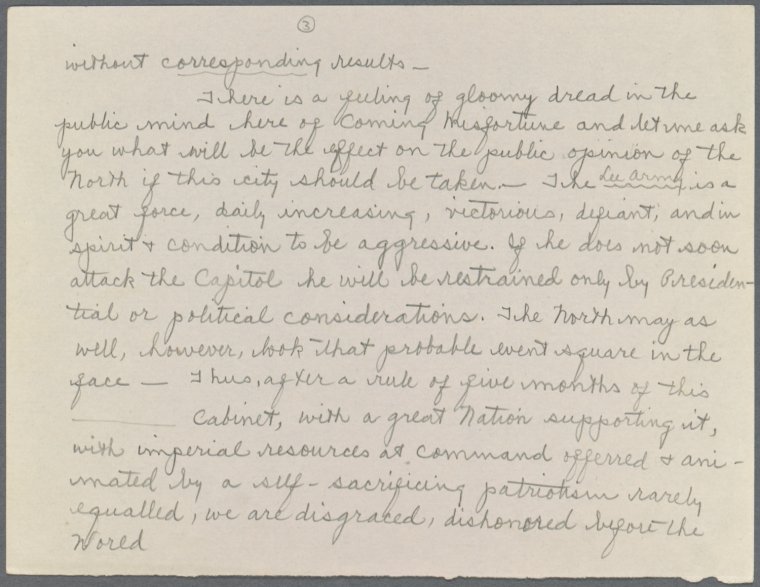 3
without corresponding results –
There is a feeling of gloomy dread in the
public mind here of coming Misfortune and let me ask
you what will be the effect on the public opinion of the
North if this city should be taken. – The Lee Army is a
great force, daily increasing, victorious, defiant, and in
spirit & condition to be aggressive. If he does not soon
attack the Capitol he will be restrained only by Presiden-
tial or political considerations. The North may as
well, however, look that probable event square in the
face – Thus, after a rule of five months of this
________ Cabinet, with a great Nation supporting it,
with imperial resources at command offerred & ani-
mated by a self-sacrificing patriotism rarely
equalled, we are disgraced, dishonored before the
World